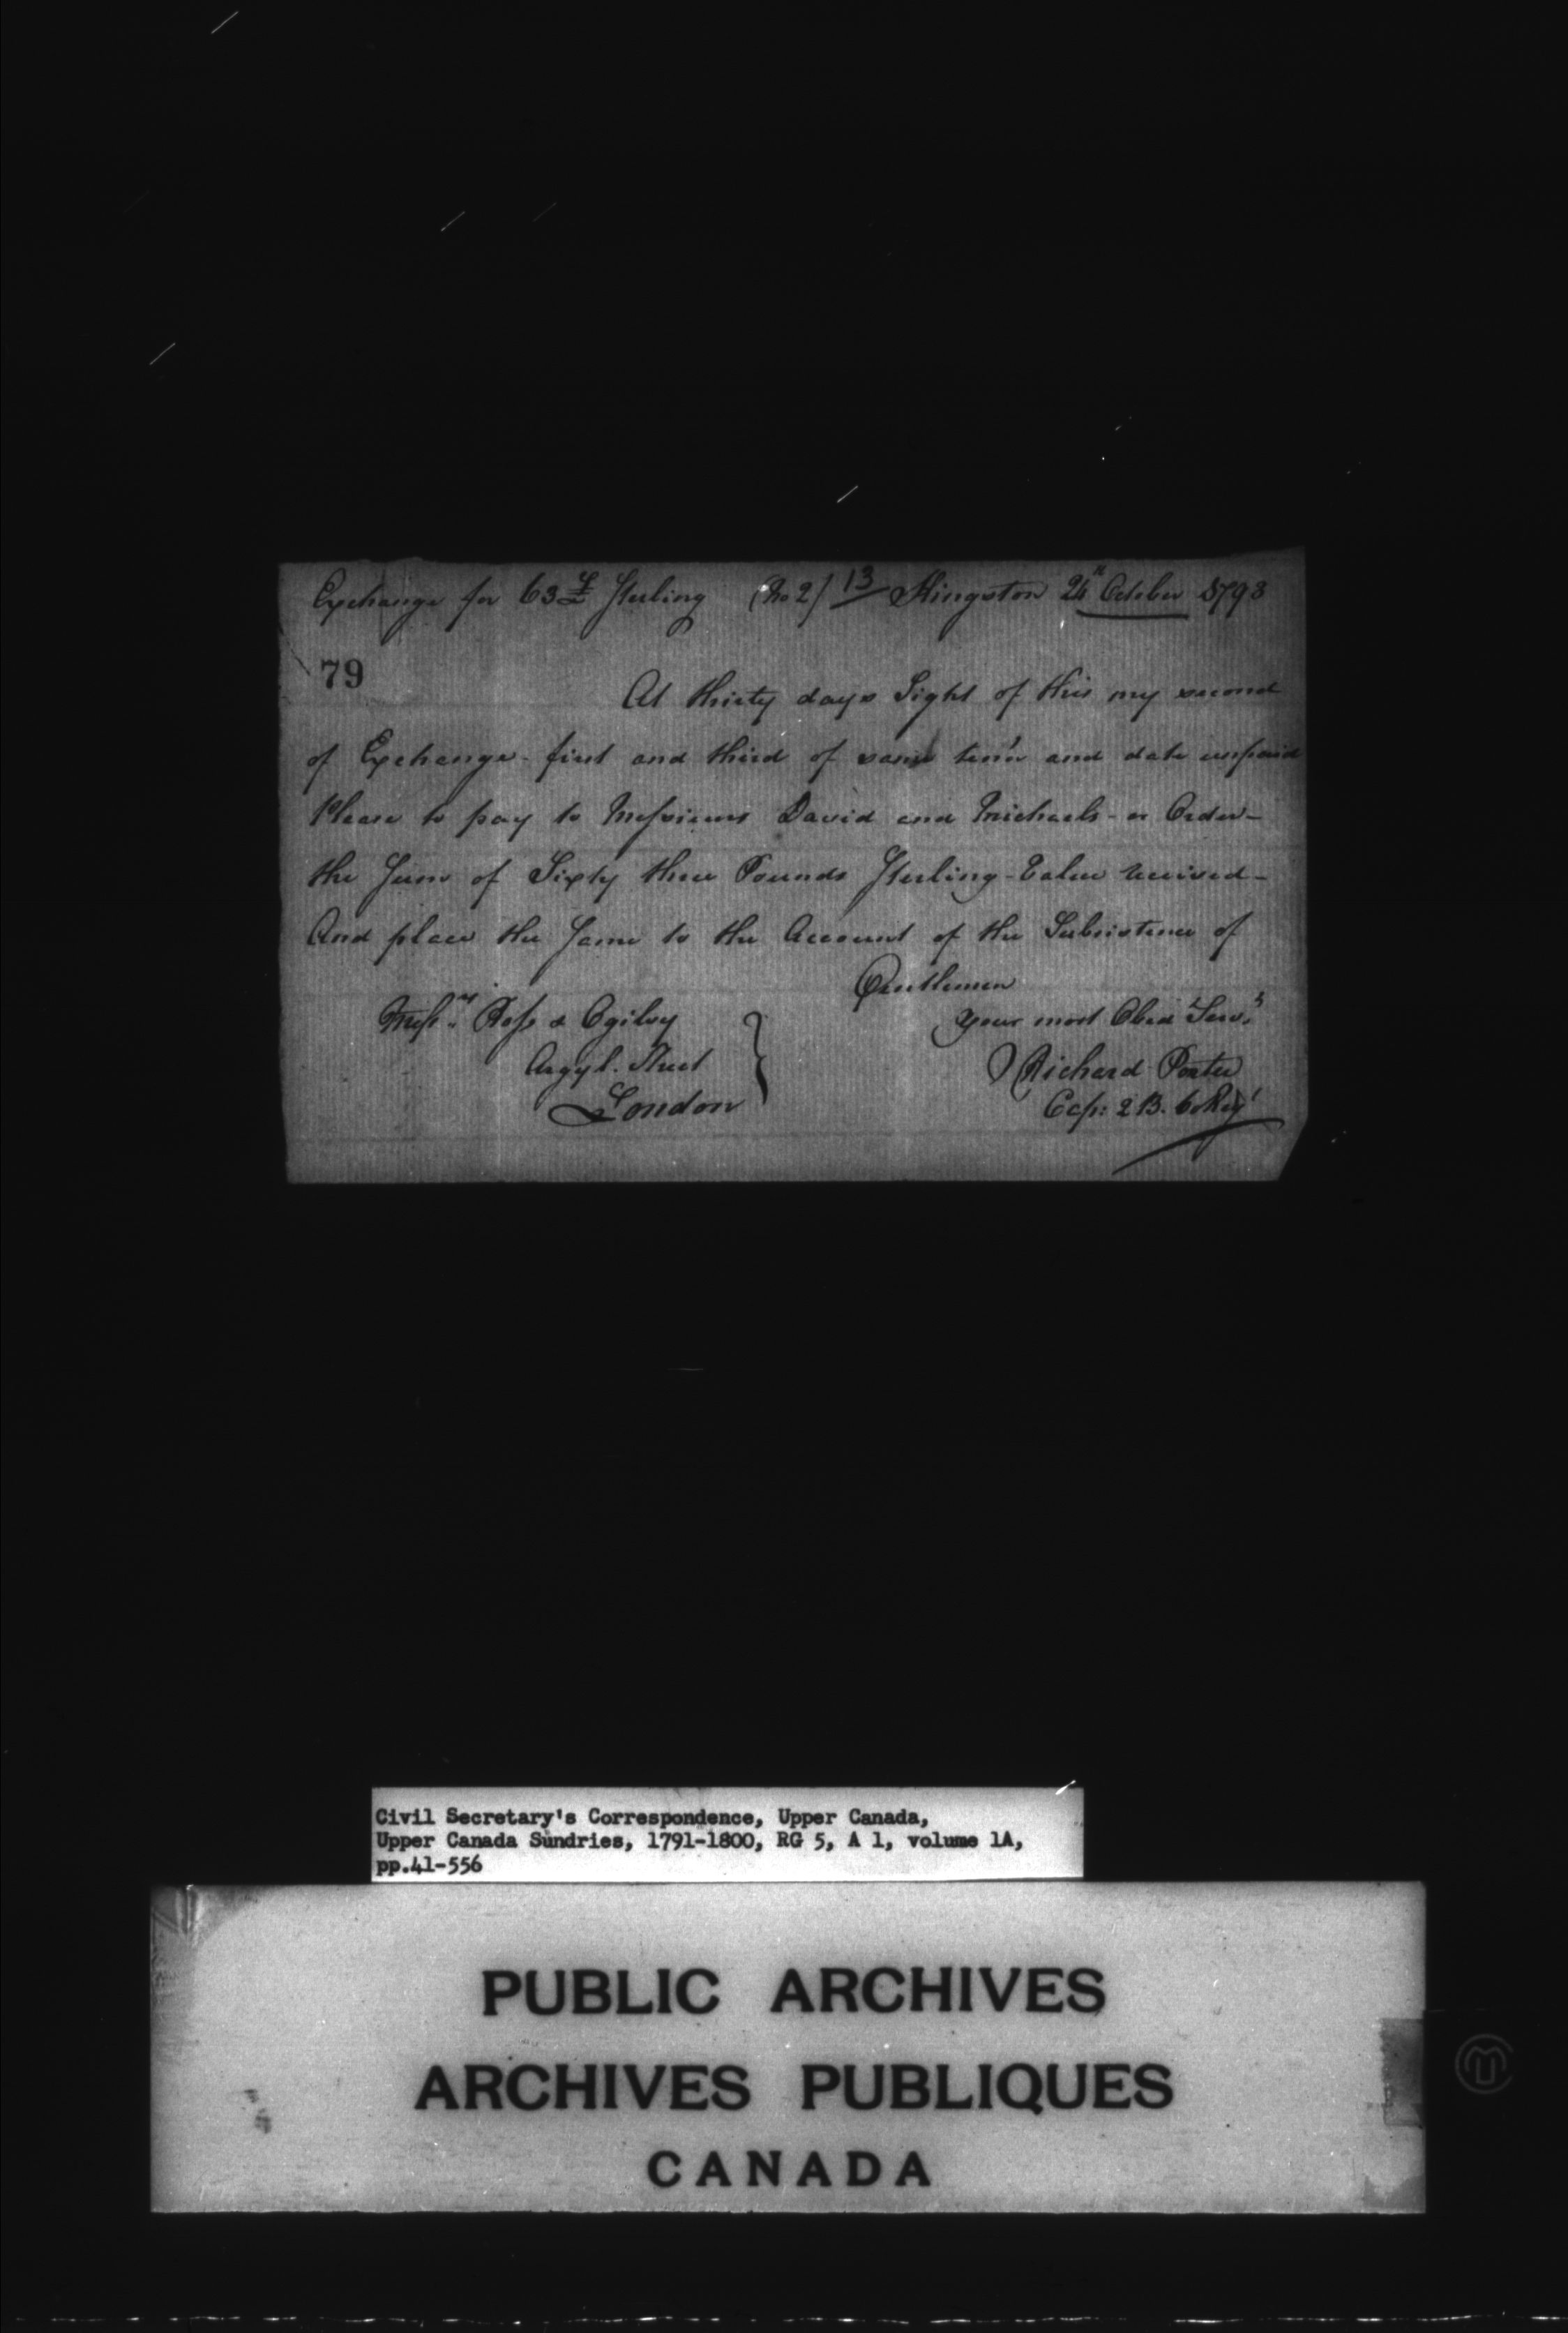 Exchange for 63 £ Sterling (No 2) 13 Kingston 24th October 1793
79
At thirty days Sight of this my second
of Exchange - first and third of same ten'r and date unpaid
Please to pay to Messieurs David and Michaels - or Order -
the Sum of Sixty three Pounds Sterling - Value received -
And place the Same to the Account of the Subsistence of
Gentlemen
Mess.rs Ross & Ogilvy
your most Obed Serv.t
Argyl. Street
Richard Porter
London
Cap: 2 B. 60 Reg't
Civil Secretary's Correspondence, Upper Canada,
Upper Canada Sundries, 1791-1800, RG 5, A 1, volume 1A,
pp.41-556
PUBLIC ARCHIVES
ARCHIVES PUBLIQUES
CANADA